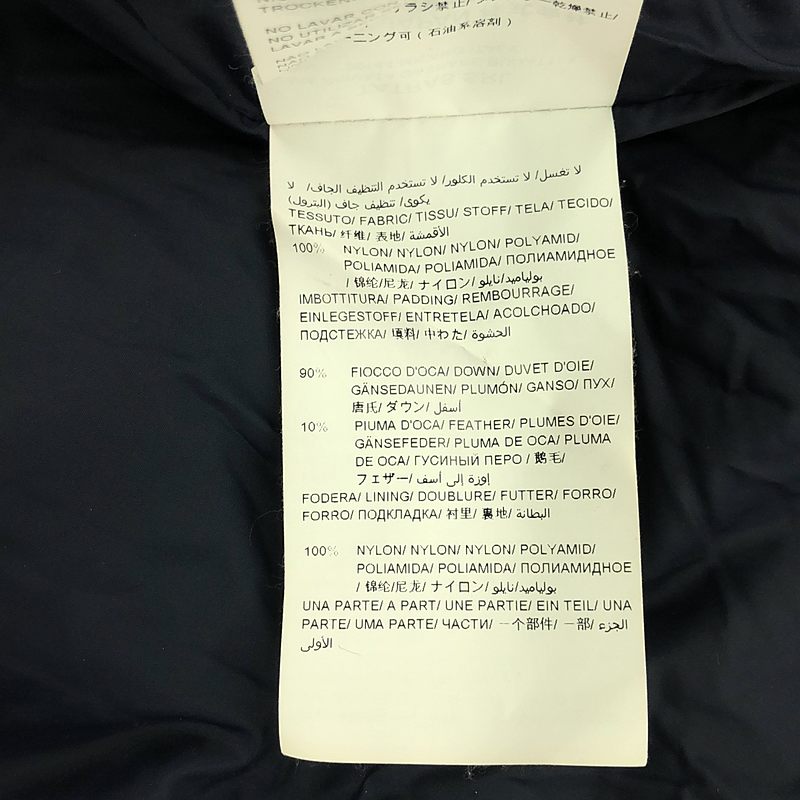 TROCKEN
NO LAVAR
NO UTILIZ
LAVAR A
ラシ禁止/
乾燥禁止/
ーニング可 ( 石油系溶剤 )
لا تغسل/ لا تستخدم الكلور/ لا تستخدم التنظيف الجاف/ لا
يكوى/ تنظيف جاف (البترول)
TESSUTO/ FABRIC/ TISSU/ STOFF/ TELA/ TECIDO/
ТКАНЬ/ 纤维/ 表地/ الأقمشة
100% NYLON/ NYLON/ NYLON/ POLYAMID/
POLIAMIDA/ POLIAMIDA/ ПОЛИАМИДНОЕ
/ 锦纶/尼龙/ ナイロン/ بولياميد/نايلو
IMBOTTITURA/ PADDING/ REMBOURRAGE/
EINLEGESTOFF/ ENTRETELA/ ACOLCHOADO/
ПОДСТЕЖКА/ 填料/ 中わた/ الحشوة
90% FIOCCO D'OCA/ DOWN/ DUVET D'OIE/
GÄNSEDAUNEN/ PLUMÓN/ GANSO/ ПУХ/
唐氏/ ダウン/ أسفل
10% PIUMA D'OCA/ FEATHER/ PLUMES D'OIE/
GÄNSEFEDER/ PLUMA DE OCA/ PLUMA
DE OCA/ ГУСИНЫЙ ПЕРО / 鹅毛/
フェザー/ إوزة إلى أسف
FODERA/ LINING/ DOUBLURE/ FUTTER/ FORRO/
FORRO/ ПОДКЛАДКА/ 衬里/ 裏地/ البطانة
100% NYLON/ NYLON/ NYLON/ POLYAMID/
POLIAMIDA/ POLIAMIDA/ ПОЛИАМИДНОЕ
/ 锦纶/尼龙/ ナイロン/ بولياميد/نايلو
UNA PARTE/ A PART/ UNE PARTIE/ EIN TEIL/ UNA
PARTE/ UMA PARTE/ ЧАСТИ/ 一个部件/ 一部/ الجزء
الأولى